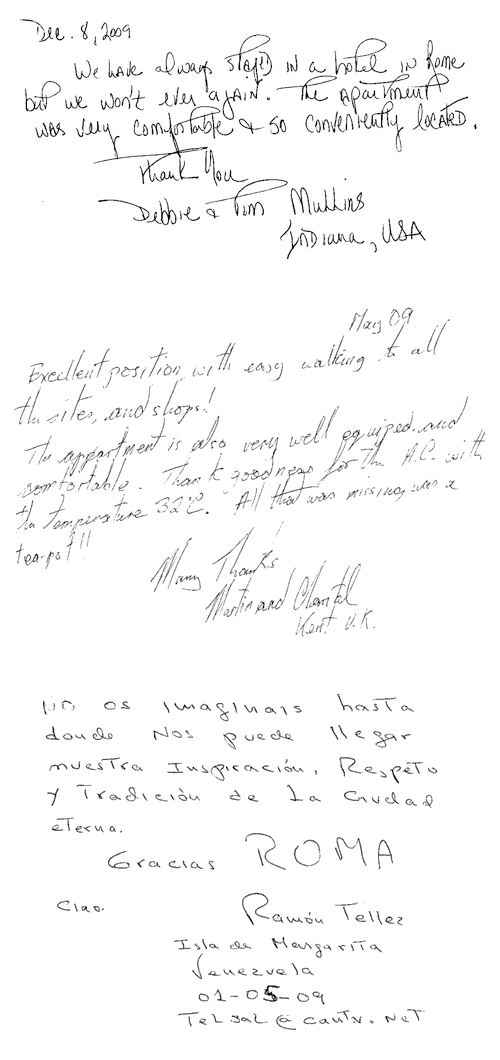 Dec. 8, 2009
We have always stayed in a hotel in Rome
but we won't ever again. The apartment
was very comfortable & so conveniently located.
Thank You
Debbie & Tim Mullins
Indiana, USA
May 09
Excellent position with easy walking to all
the sites, and shops!
The appartment is also very well equiped and
comfortable. Thank goodness for the A.C. with
the temperature 32°C. All that was missing was a
tea-pot!!
Many Thanks
Martin and Chantal
Kent U.K.
No os imaginais hasta
donde nos puede llegar
nuestra Inspiración, Respeto
y Tradición de La Ciudad
eterna.
Gracias ROMA
Ciao.
Ramón Tellez
Isla de Margarita
Venezuela
01-05-09
Telsal@cantv.net